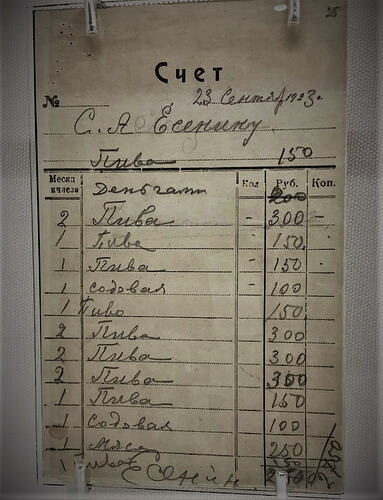 25
Счет
№ 23 Сентяб 1923г.
С. А Есенину
Пива 150
Месяц и число Кол Руб. Коп.
Деньгами 200
2 Пива - 300 -
1 Пива - 150 -
1 Пива - 150 -
1 содовая - 100
1 Пиво 150
2 Пива 300
2 Пива 300
2 Пива 300
1 Пива 150
1 содовая 100
1 мясо 250
1 Пива
Есенин